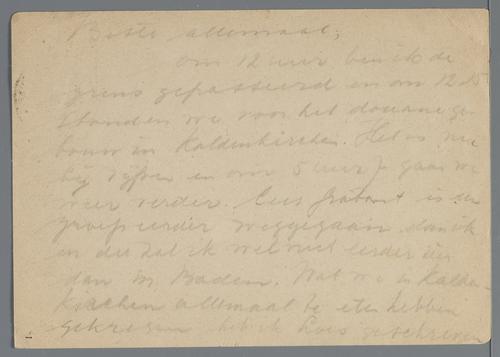 Beste allemaal,
om 12 uur ben ik de
grens gepasseerd en om 12.15
stonden we voor het douanege-
bouw in Kaldenkirchen. Het is nu
bij vijven en om 5 uur gaan we
weer verder. Cees is een
groep eerder weggegaan dan ik
en dus zal ik wel niet eerder
dan in Baden. Wat we in Kalden-
kirchen allemaal te eten hebben
gekregen heb ik geschreven